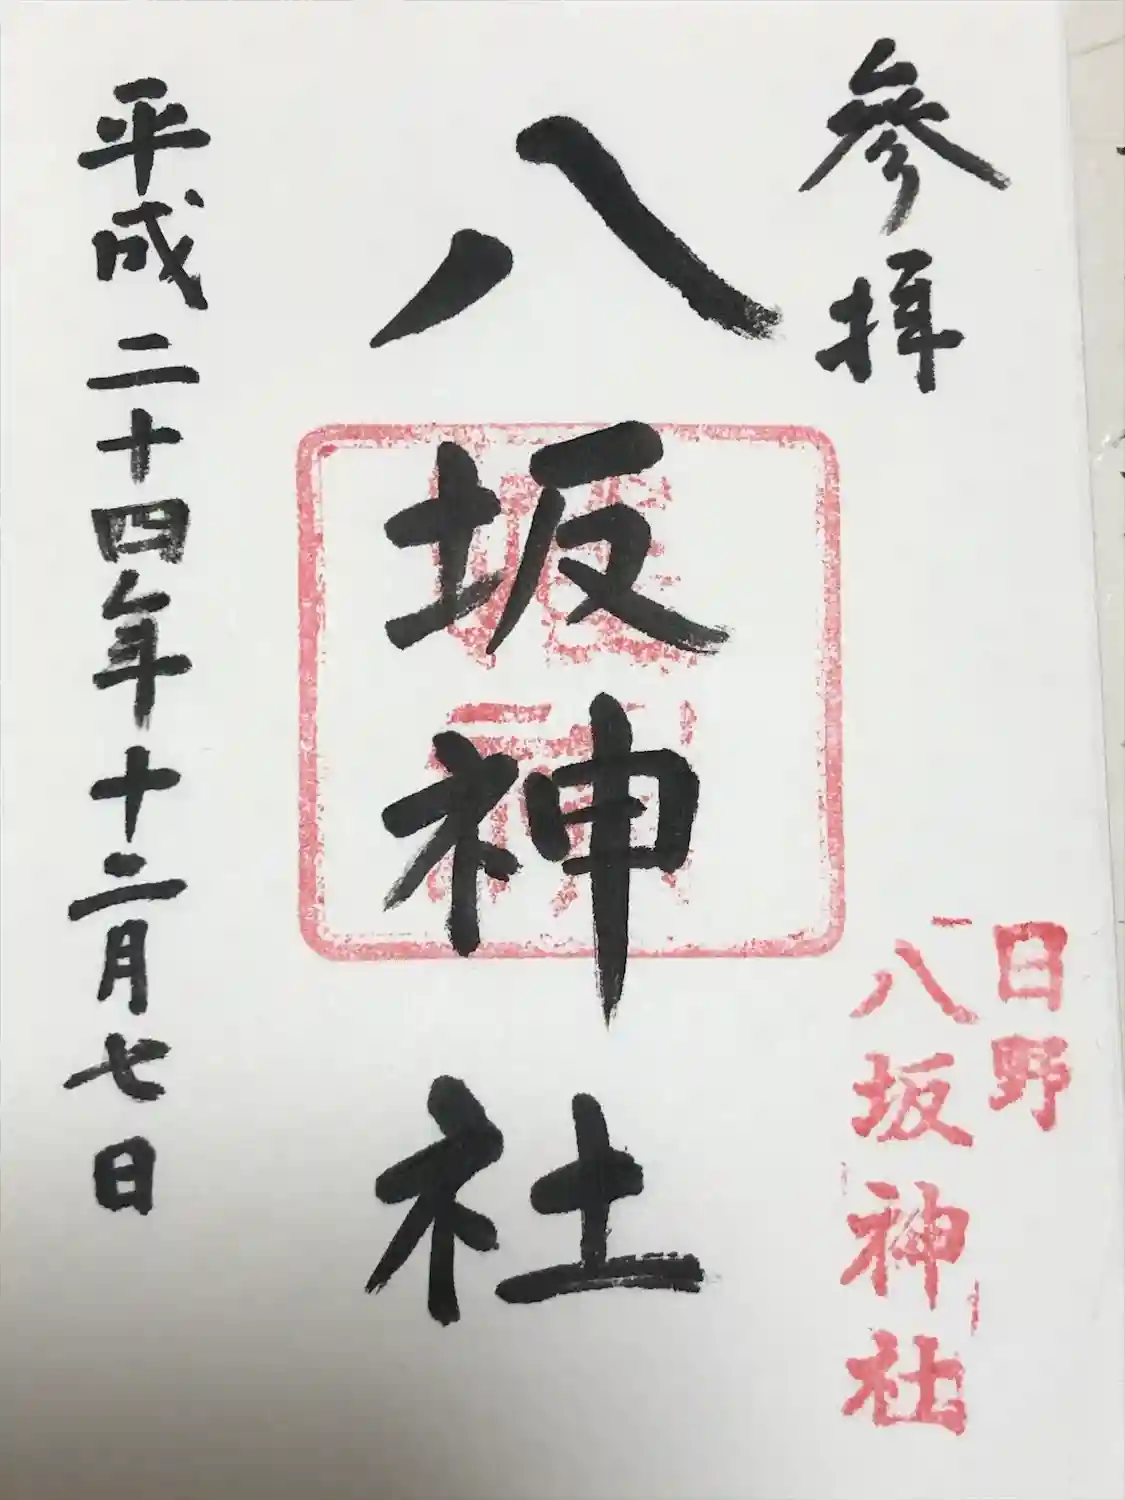 參拜
八坂神社
日野
八坂神社
平成二十四年十二月七日